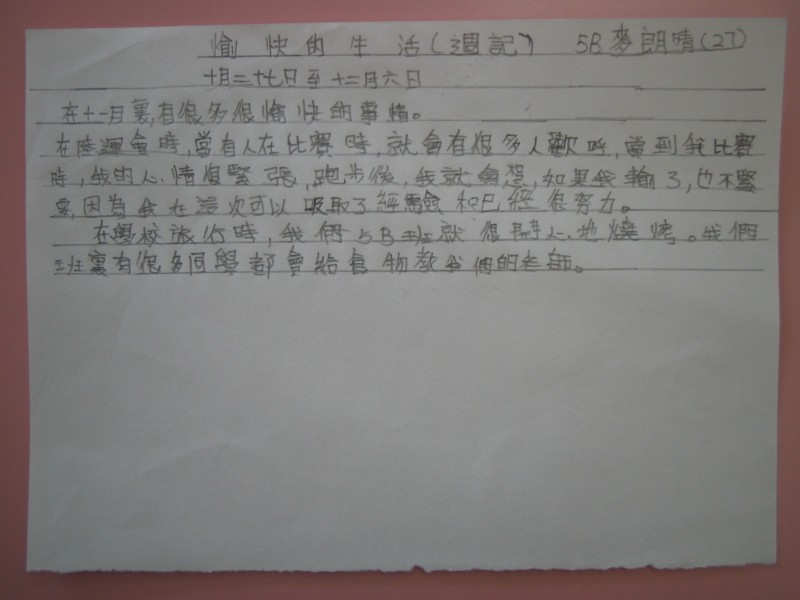 愉快的生活(週記) 5B 麥朗晴(27)
十月二十七日至十二月六日
在十一月裏,有很多很愉快的事情。
在陸運會時,當有人在比賽時,就會有很多人歡呼,當到我比賽
時,我的心情很緊張,跑步後,我就會想,如果我輸了,也不緊
要,因為我在這次可以吸取了經驗和已經很努力。
在學校旅行時,我們5B班就很開心地燒烤。我們
班裏有很多同學都會給食物教我們的老師。